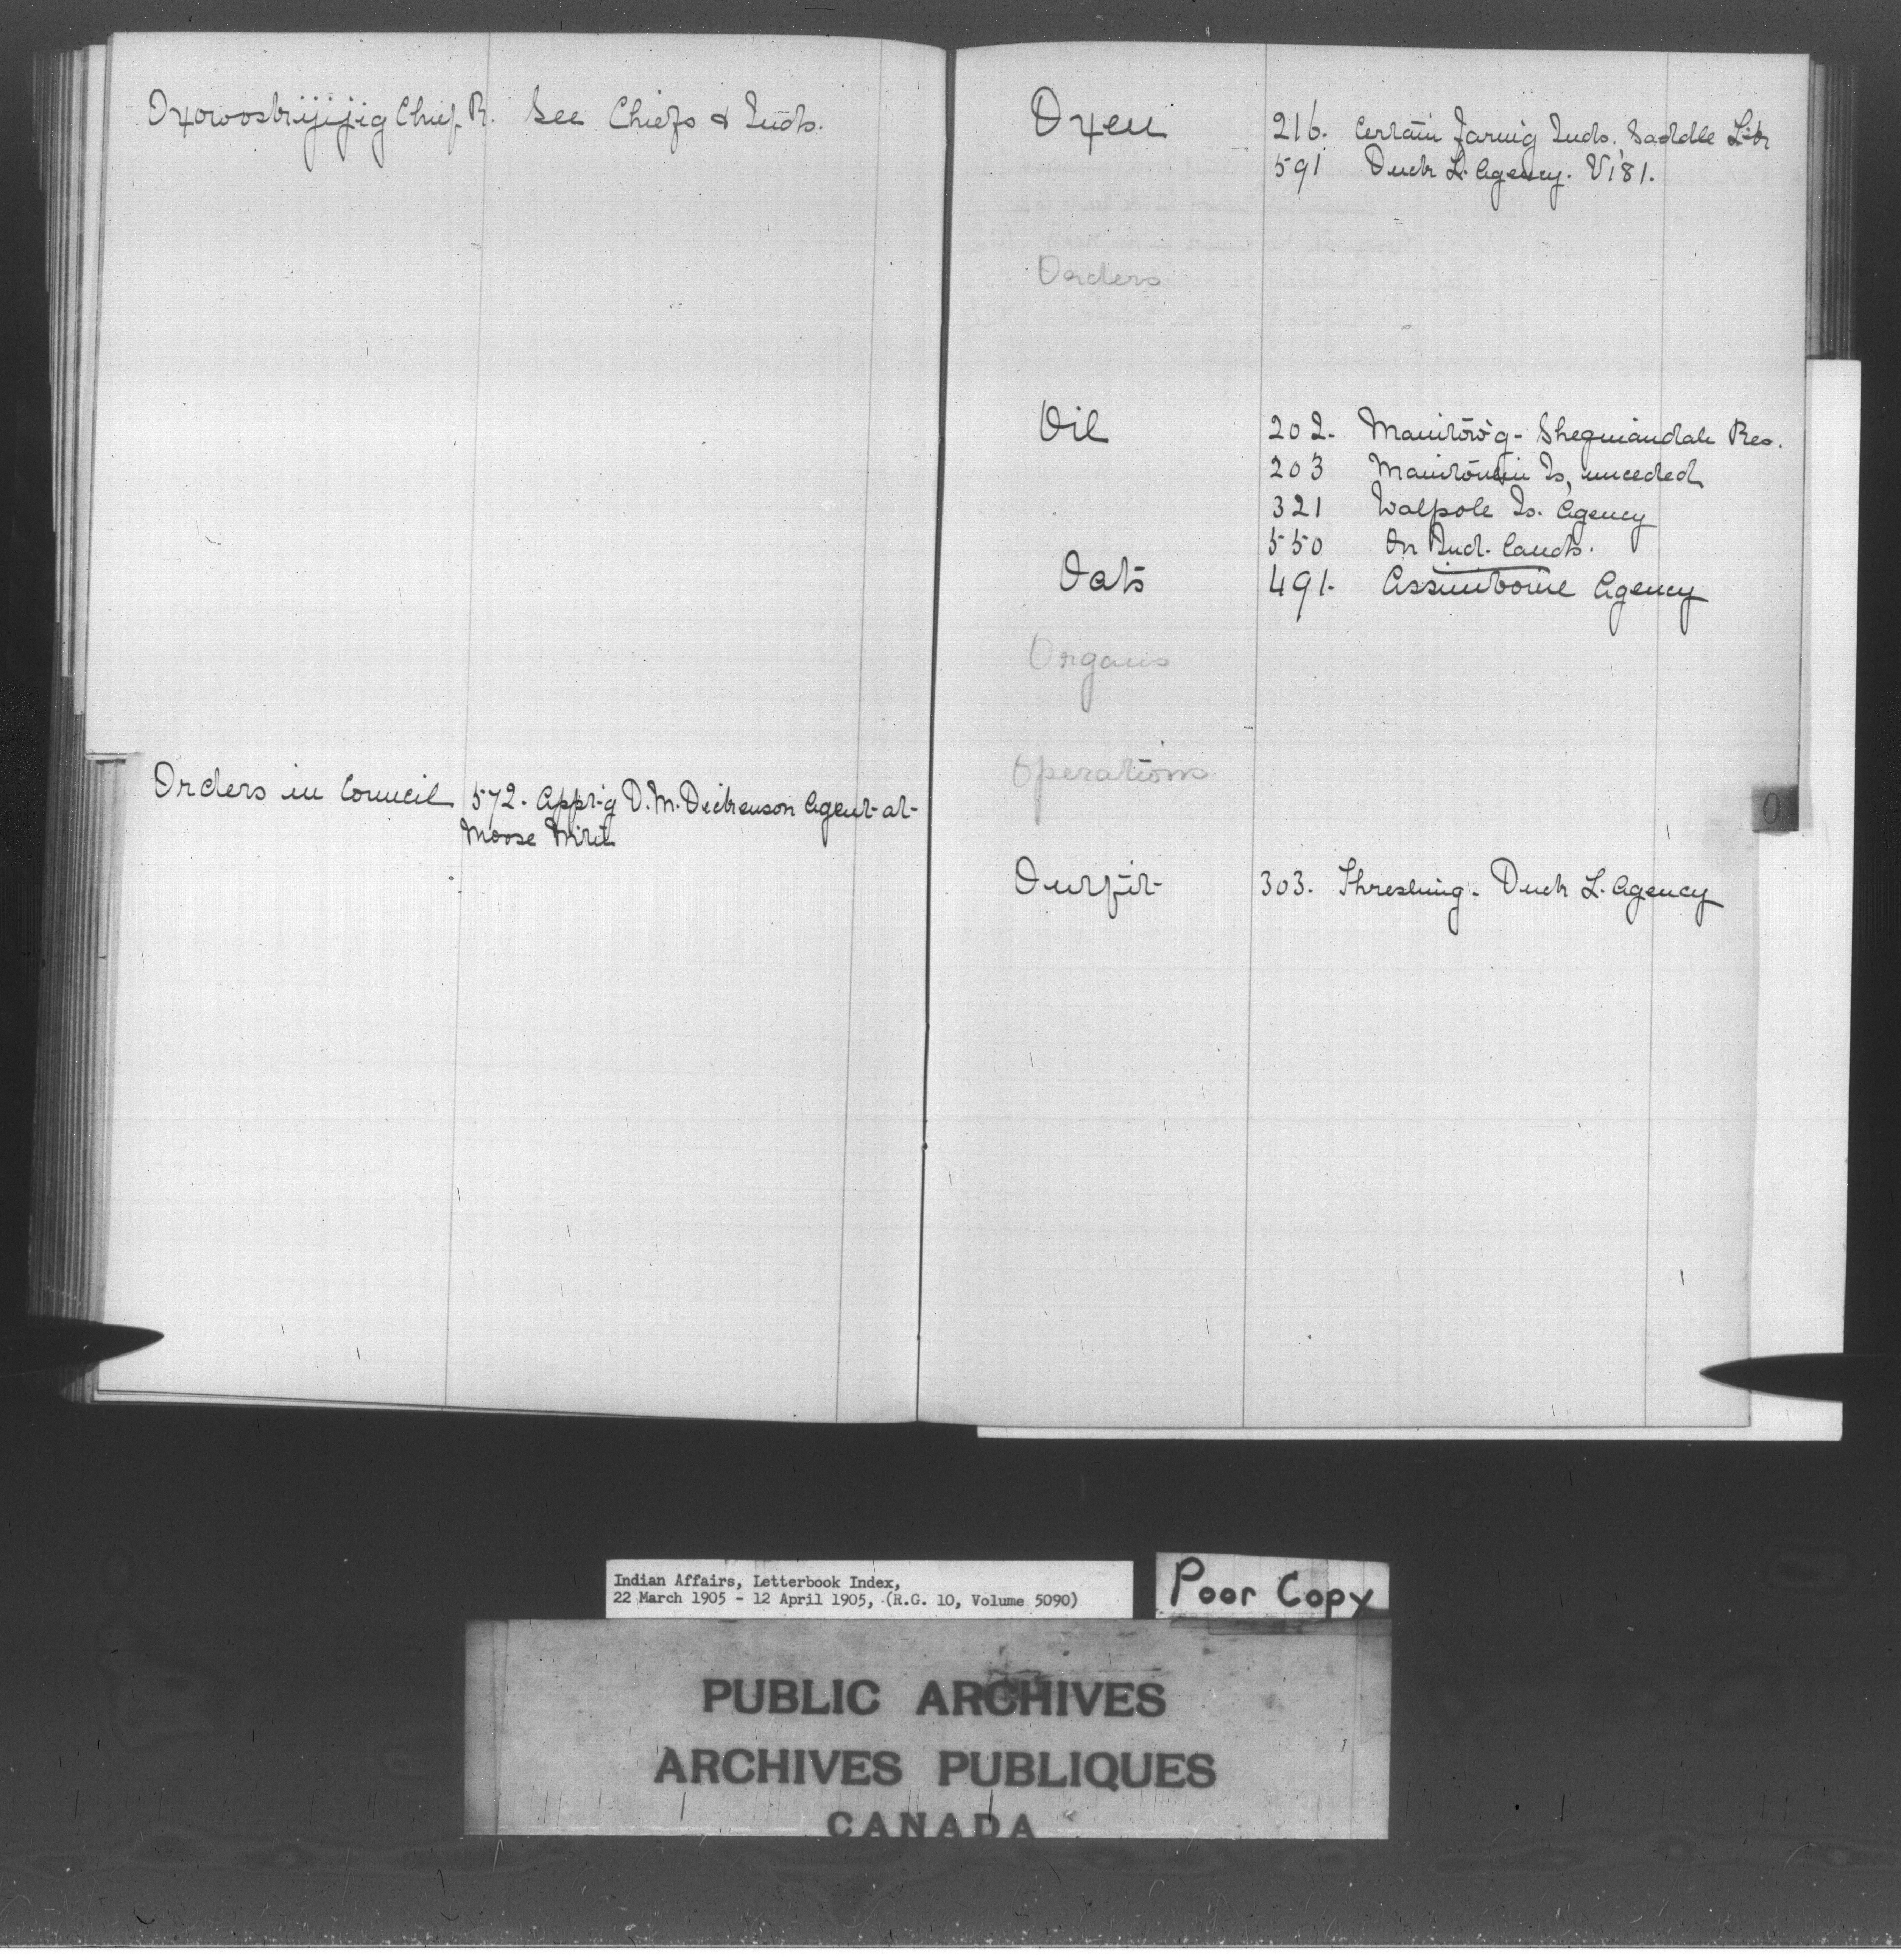 Chief R. See Chiefs & Inds.
Orders in Council 572. Appt-g D. M. Dickenson Agent at
Moose Mtn
Oxen 216. Certain farmg Inds. Saddle Lk
591 Duck L. Agency. V181.
Orders
Oil 202. Manitow'g - Sheguiandah Res.
203 Manitoulin Is, unceded
321 Walpole Is. Agency
550 On Ind. lands.
Oats 491. Assiniboine Agency
Organs
Operations
O
Outfit 303. Threshing - Duck L. Agency
Indian Affairs, Letterbook Index,
22 March 1905 - 12 April 1905, (R.G. 10, Volume 5090)
Poor Copy
PUBLIC ARCHIVES
ARCHIVES PUBLIQUES
CANADA